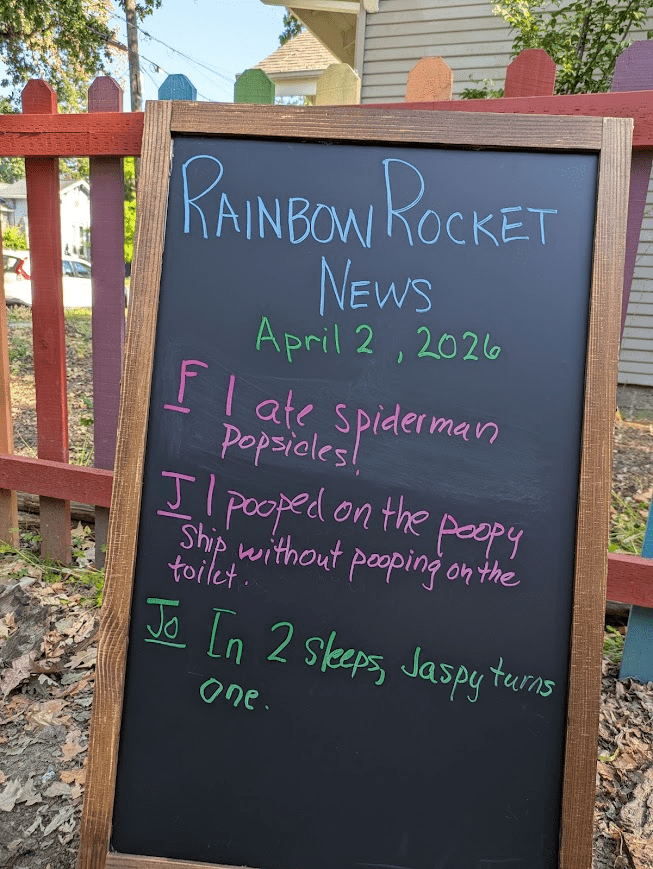 RAINBOW ROCKET
NEWS
April 2, 2026
F I ate spiderman
popsicles!
J I pooped on the poopy
ship without pooping on the
toilet.
Jo In 2 sleeps, Jaspy turns
one.